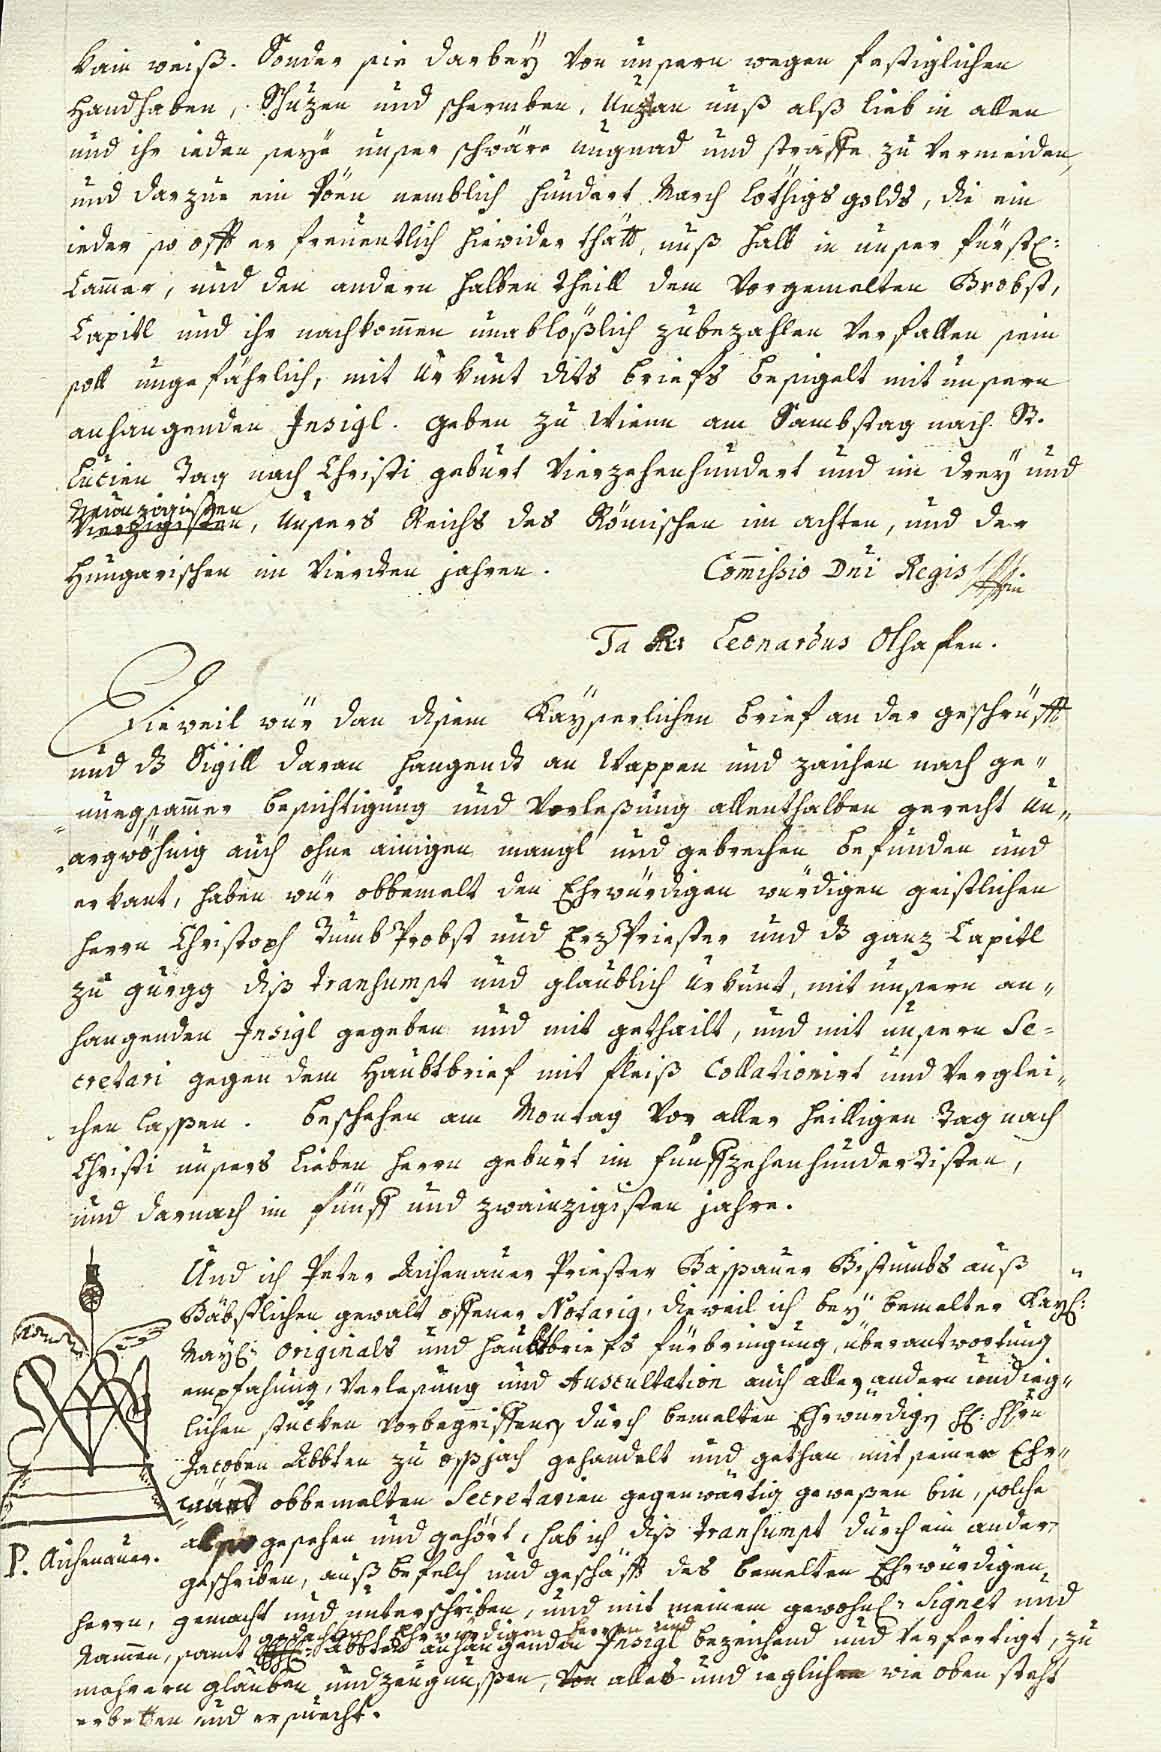 kain weiß. Sonder sie darbeÿ von unsern wegen festiglichen
Handhaben, Schuzen und schermben, Unzan uns alß lieb in allen
und ihr ieden seÿe unser schwäre ungnad und straffe zu vermeiden,
und darzue ein Pöen nemblich hundert March löthigs golds, die ein
ieder so offt er freuentlich hiewider thätt, unß halb in unser fürstl:
Cammer, und den andern halben theill dem Vorgemelten Brobst,
Capitl und ihr nachkomen unablößlich zubezahlen verfallen sein
soll ungefährlich, mit Urkunt dits briefs besigelt mit unsern
anhangenden Insigl. geben zu Wienn am Sambstag nach St.
Lucien Tag nach Christi geburt Vierzehenhundert und im dreÿ und
Neunzigisten
Vierzigisten, Unsers Reichs des Römischen im achten, und der
Hungarischen im Vierten jahren. Commissio Dni Regis
Ta R: Leonardus Olhafen.
Dieweil wür dan disem Kaÿserlichen brief an der geschrüfft
und dz Sigill daran hangendt an Wappen und zaichen nach ge„
nuegsammer besichtigung und Vorleßung allenthalben gerecht un„
„argwöhnig auch ohne ainigen mangl und gebrechen befunden und
erkant, haben wür obbemelt den Ehrwürdigen würdigen geistlichen
herrn Christoph Tumb Probst und ErzPriester und dz ganz Capitl
zu gurgg diß transumpt und glaublich Urkunt, mit unsern an„
hangenden Insigl gegeben und mit gethailt, und mit unsern Se=
cretari gegen dem Haubtbrief mit fleiß Collationirt und Verglei„
chen lassen. beschehen am Montag vor aller heilligen Tag nach
Christi unsers lieben herrn geburt im fünffzehenhundertisten,
und darnach im fünff und zwainzigisten jahre.
Und ich Peter Aichenauer Priester Passauer Bistumbs auß
Bäbstlichen gewalt offener Notarig, dieweil ich beÿ bemelter Kaÿl:
Maÿl: Originals und haubtbriefs fürbringung, überantwortung
empfahung, verlesung und Auscultation auch aller andern und ieg„
lichen stücken vorbegriffens durch bemelten Ehrwürdigen H: Hrn
Jacoben Abbten zu oßsjach gehandelt und gethan mit seiner Ehr„
würd obbemelten Secretarien gegenwärtig geweßen bin, solche
also gesehen und gehört, hab ich diß transumpt durch ein ander
P. Aichenauer.
geschriben, auß befelch und geschäfft des bemelten Ehrwürdigen
herrn, gemacht und unterschriben, und mit meinem gewohnl: Signet und
gedachten Ehrwürdigen herren und
Nammen, samt Abbten anhangenden Insigl bezeichend und verfertigt, zu
mehrern glauben und zeugnussen, von alles und ieglichen wie oben steht
erbetten und ersuecht.